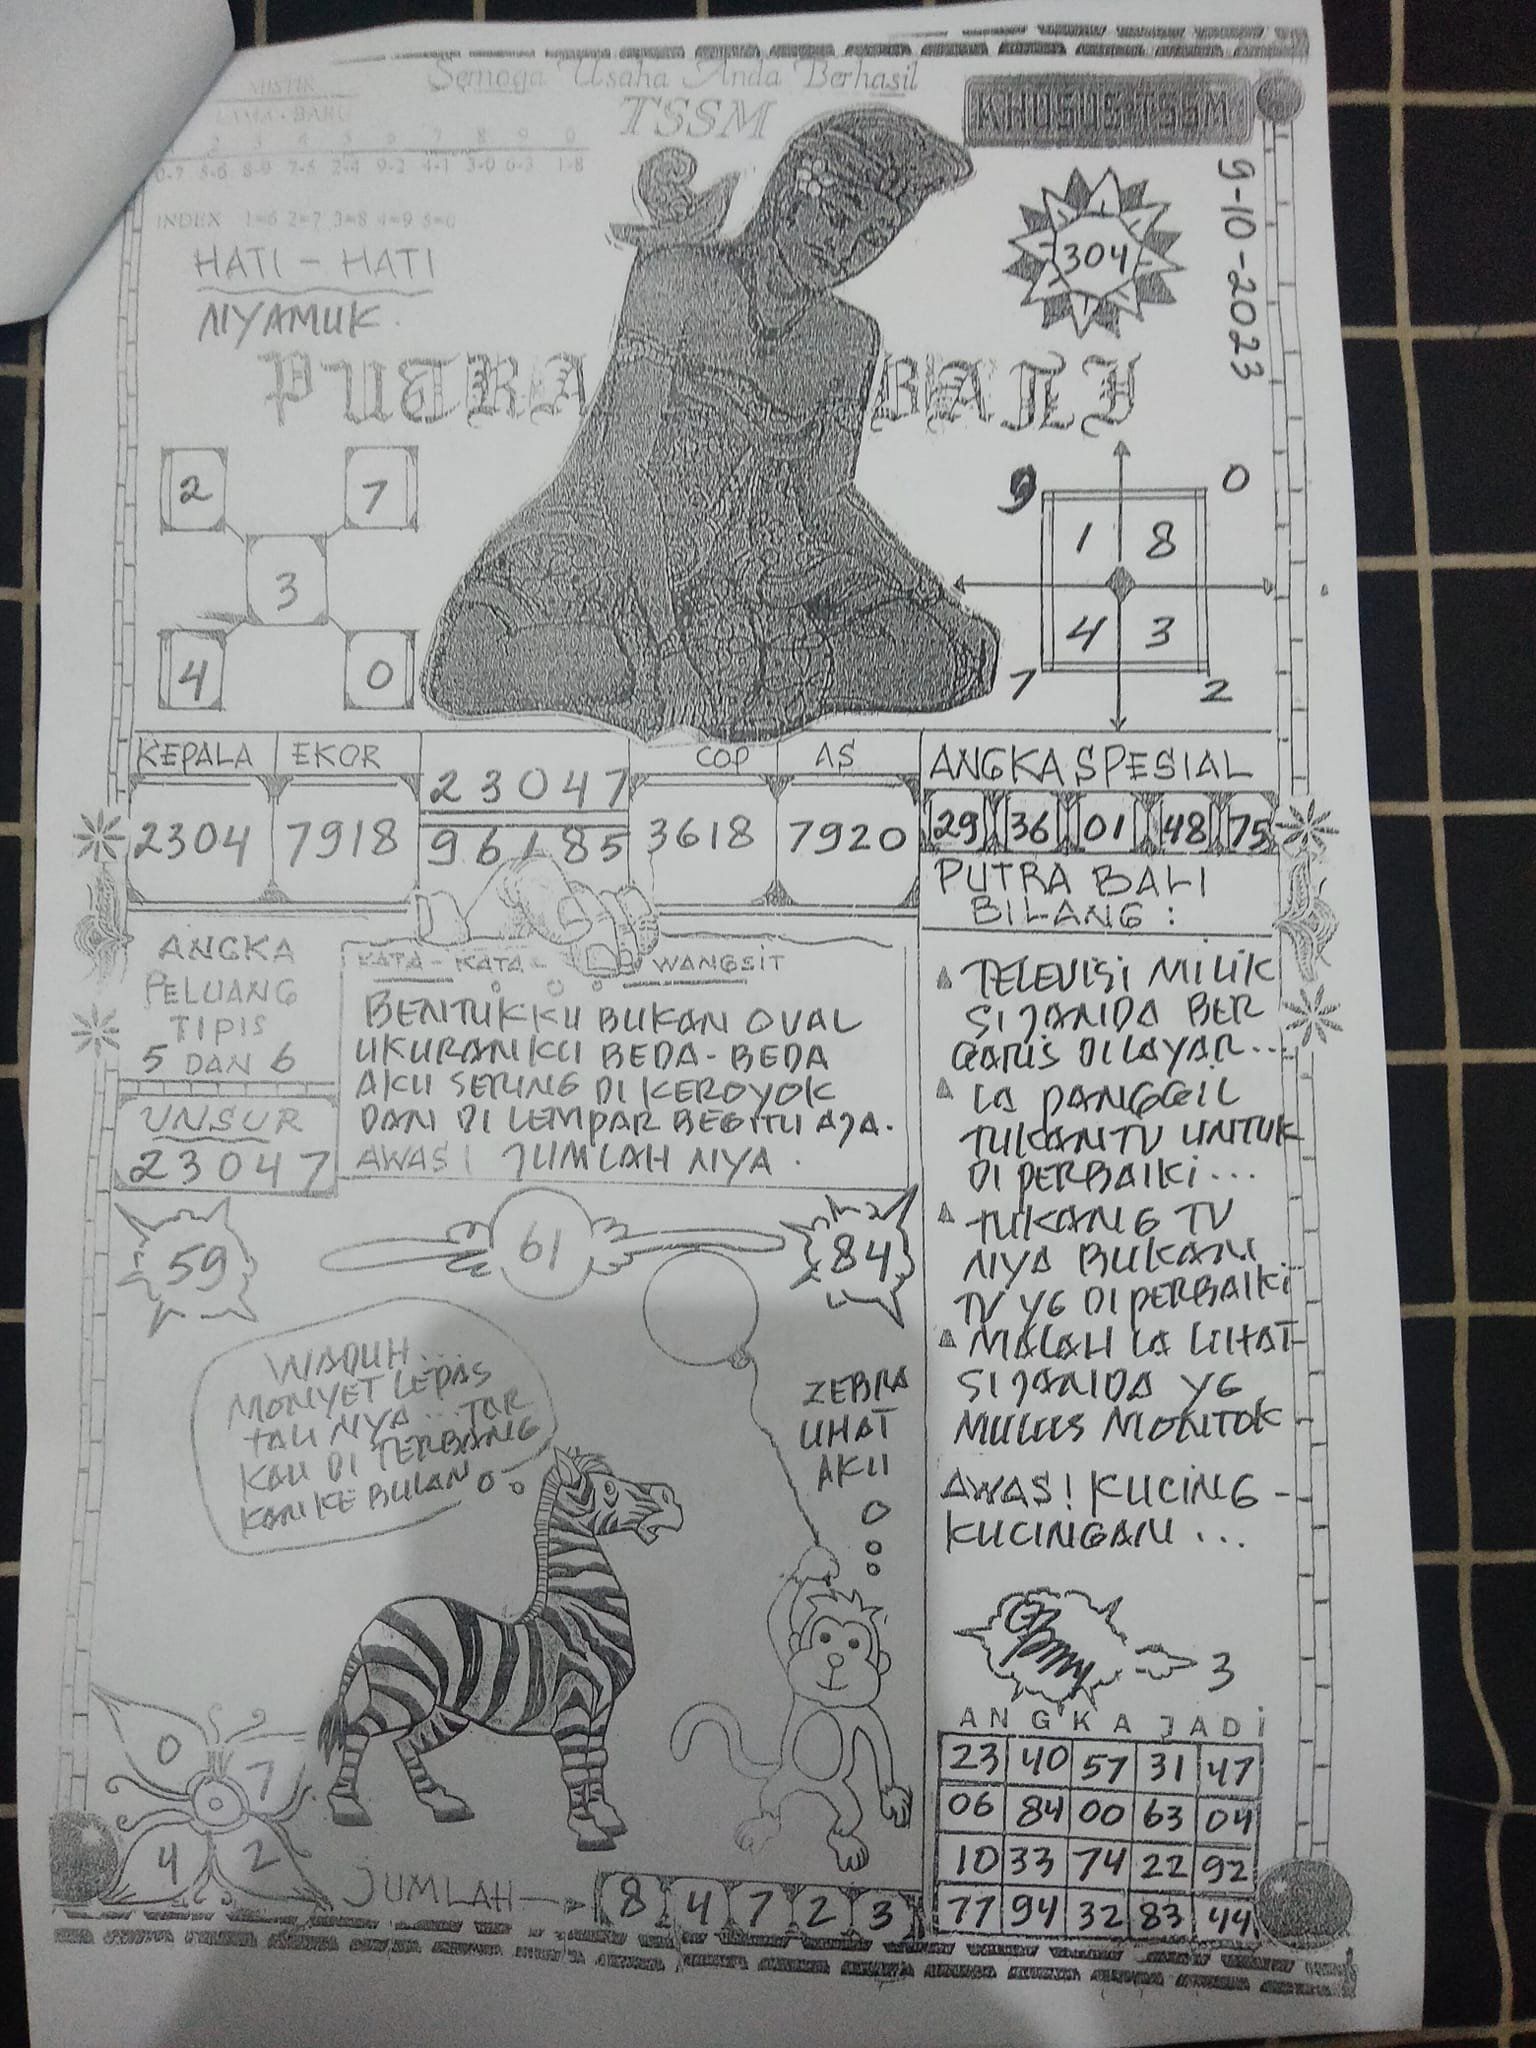 Semoga Usaha Anda Berhasil
TSSM
KHUSUS-TSSM
MISTIK
LAMA - BARU
2 3 4 5 6 7 8 9 0
0-7 5-6 8-9 7-5 2-4 9-2 4-1 3-0 6-3 1-8
INDEX 1=6 2=7 3=8 4=9 5=0
HATI - HATI
NYAMUK.
304
9-10-2023
PUTRA BALI
2 7
3
4 0
9 0
1 8
4 3
7 2
KEPALA EKOR
2304 7918
23047
96185
COP AS
3618 7920
ANGKA SPESIAL
29 36 01 48 75
ANGKA
PELUANG
TIPIS
5 DAN 6
UNSUR
23047
KATA-KATA- WANGSIT
BENTUKKU BUKAN OVAL
UKURANKU BEDA-BEDA
AKU SERING DI KEROYOK
DAN DI LEMPAR BEGITU AJA.
AWAS! JUMLAH NYA.
PUTRA BALI
BILANG :
TELEVISI MILIK
SI JANDA BER
GARIS DI LAYAR...
IA PANGGIL
TUKANG TV UNTUK
DI PERBAIKI...
TUKANG TV
NYA BUKAN
TV YG DI PERBAIKI
MALAH IA LIHAT
SI JANDA YG
MULUS MONTOK
AWAS! KUCING-
KUCINGAN...
3
59
61
84
WADUH...
MONYET LEPAS
TALI NYA...TAR
KAU DI TERBANG
KAN KE BULAN
ZEBRA
LIHAT
AKU
0 7
4 2
JUMLAH
8 4 7 2 3
ANGKA JADI
23 40 57 31 47
06 84 00 63 04
10 33 74 22 92
77 94 32 83 44